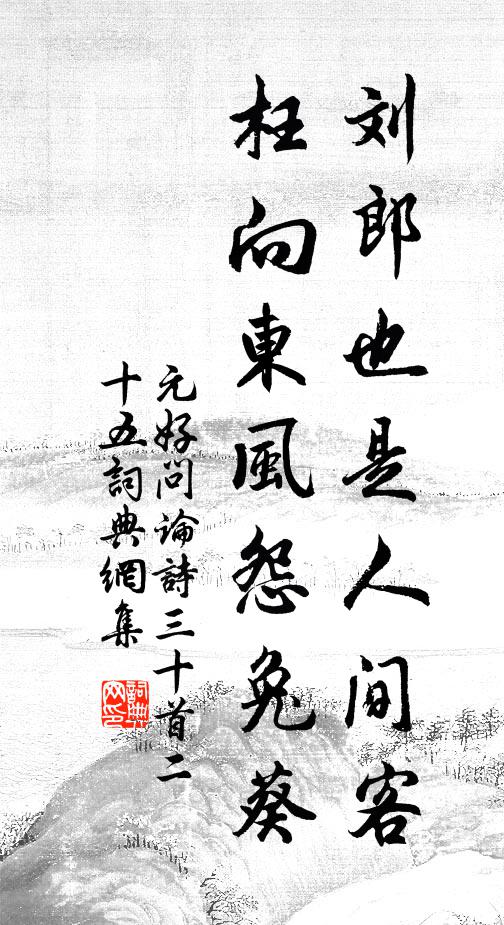 刘郎也是人间客
枉向東風怨兔葵
元好问論詩三十首二
十五詞典網集
詞典
网印